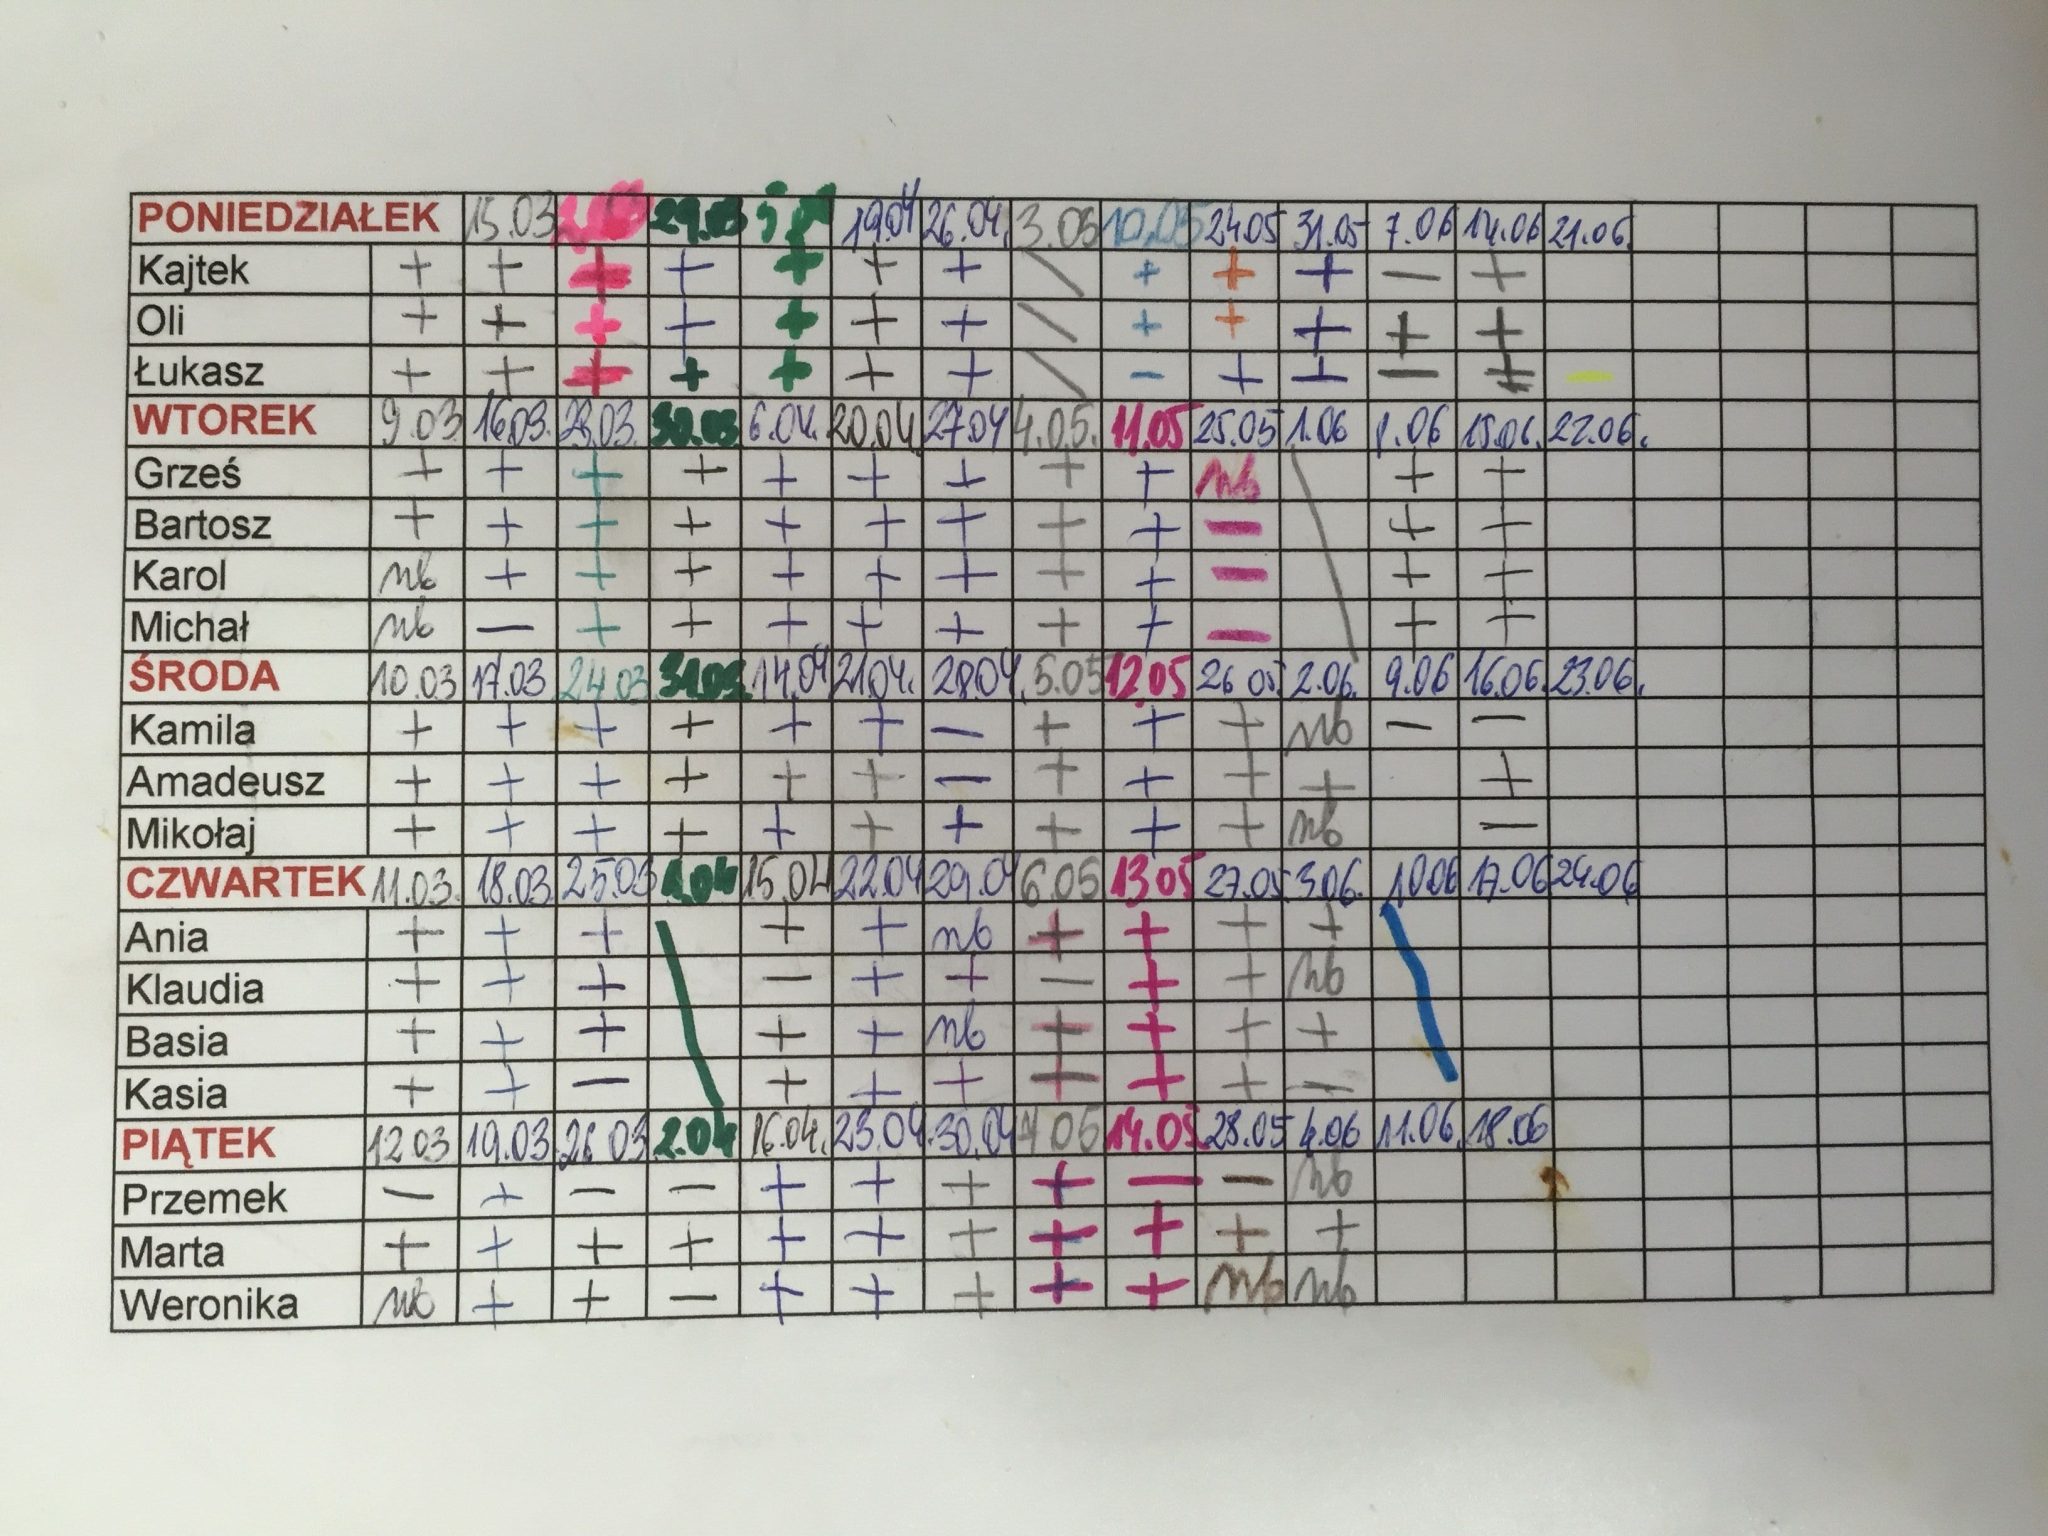 PONIEDZIAŁEK 15.03 29.03 19.04 26.04. 3.05 10.05 24.05 31.05 7.06 14.06 21.06.
Kajtek + + + + + + + \ + + + — +
Oli + + + + + + + \ + + + + +
Łukasz + + + + + + + \ — + + — + —
WTOREK 9.03 16.03. 23.03. 30.03 6.04. 20.04 27.04 4.05. 11.05 25.05 1.06 8.06 15.06. 22.06.
Grześ + + + + + + + + + nb + +
Bartosz + + + + + + + + + — + +
Karol nb + + + + + + + + — + +
Michał nb — + + + + + + + — + +
ŚRODA 10.03 17.03 24.03 31.03. 14.04 21.04. 28.04. 5.05 12.05 26.05. 2.06. 9.06 16.06. 23.06.
Kamila + + + + + + — + + + nb — —
Amadeusz + + + + + + — + + + + +
Mikołaj + + + + + + + + + + nb —
CZWARTEK 11.03. 18.03. 25.03 1.04 15.04 22.04 29.04 6.05 13.05 27.05 3.06. 10.06 17.06 24.06
Ania + + + \ + + nb + + + + \
Klaudia + + + — + + — + + nb
Basia + + + + + nb + + + +
Kasia + + — + + + + + + —
PIĄTEK 12.03 19.03. 26.03. 2.04 16.04. 23.04. 30.04 7.05 14.05. 28.05 4.06 11.06. 18.06
Przemek — + — — + + + + — — nb
Marta + + + + + + + + + + +
Weronika nb + + — + + + + + nb nb